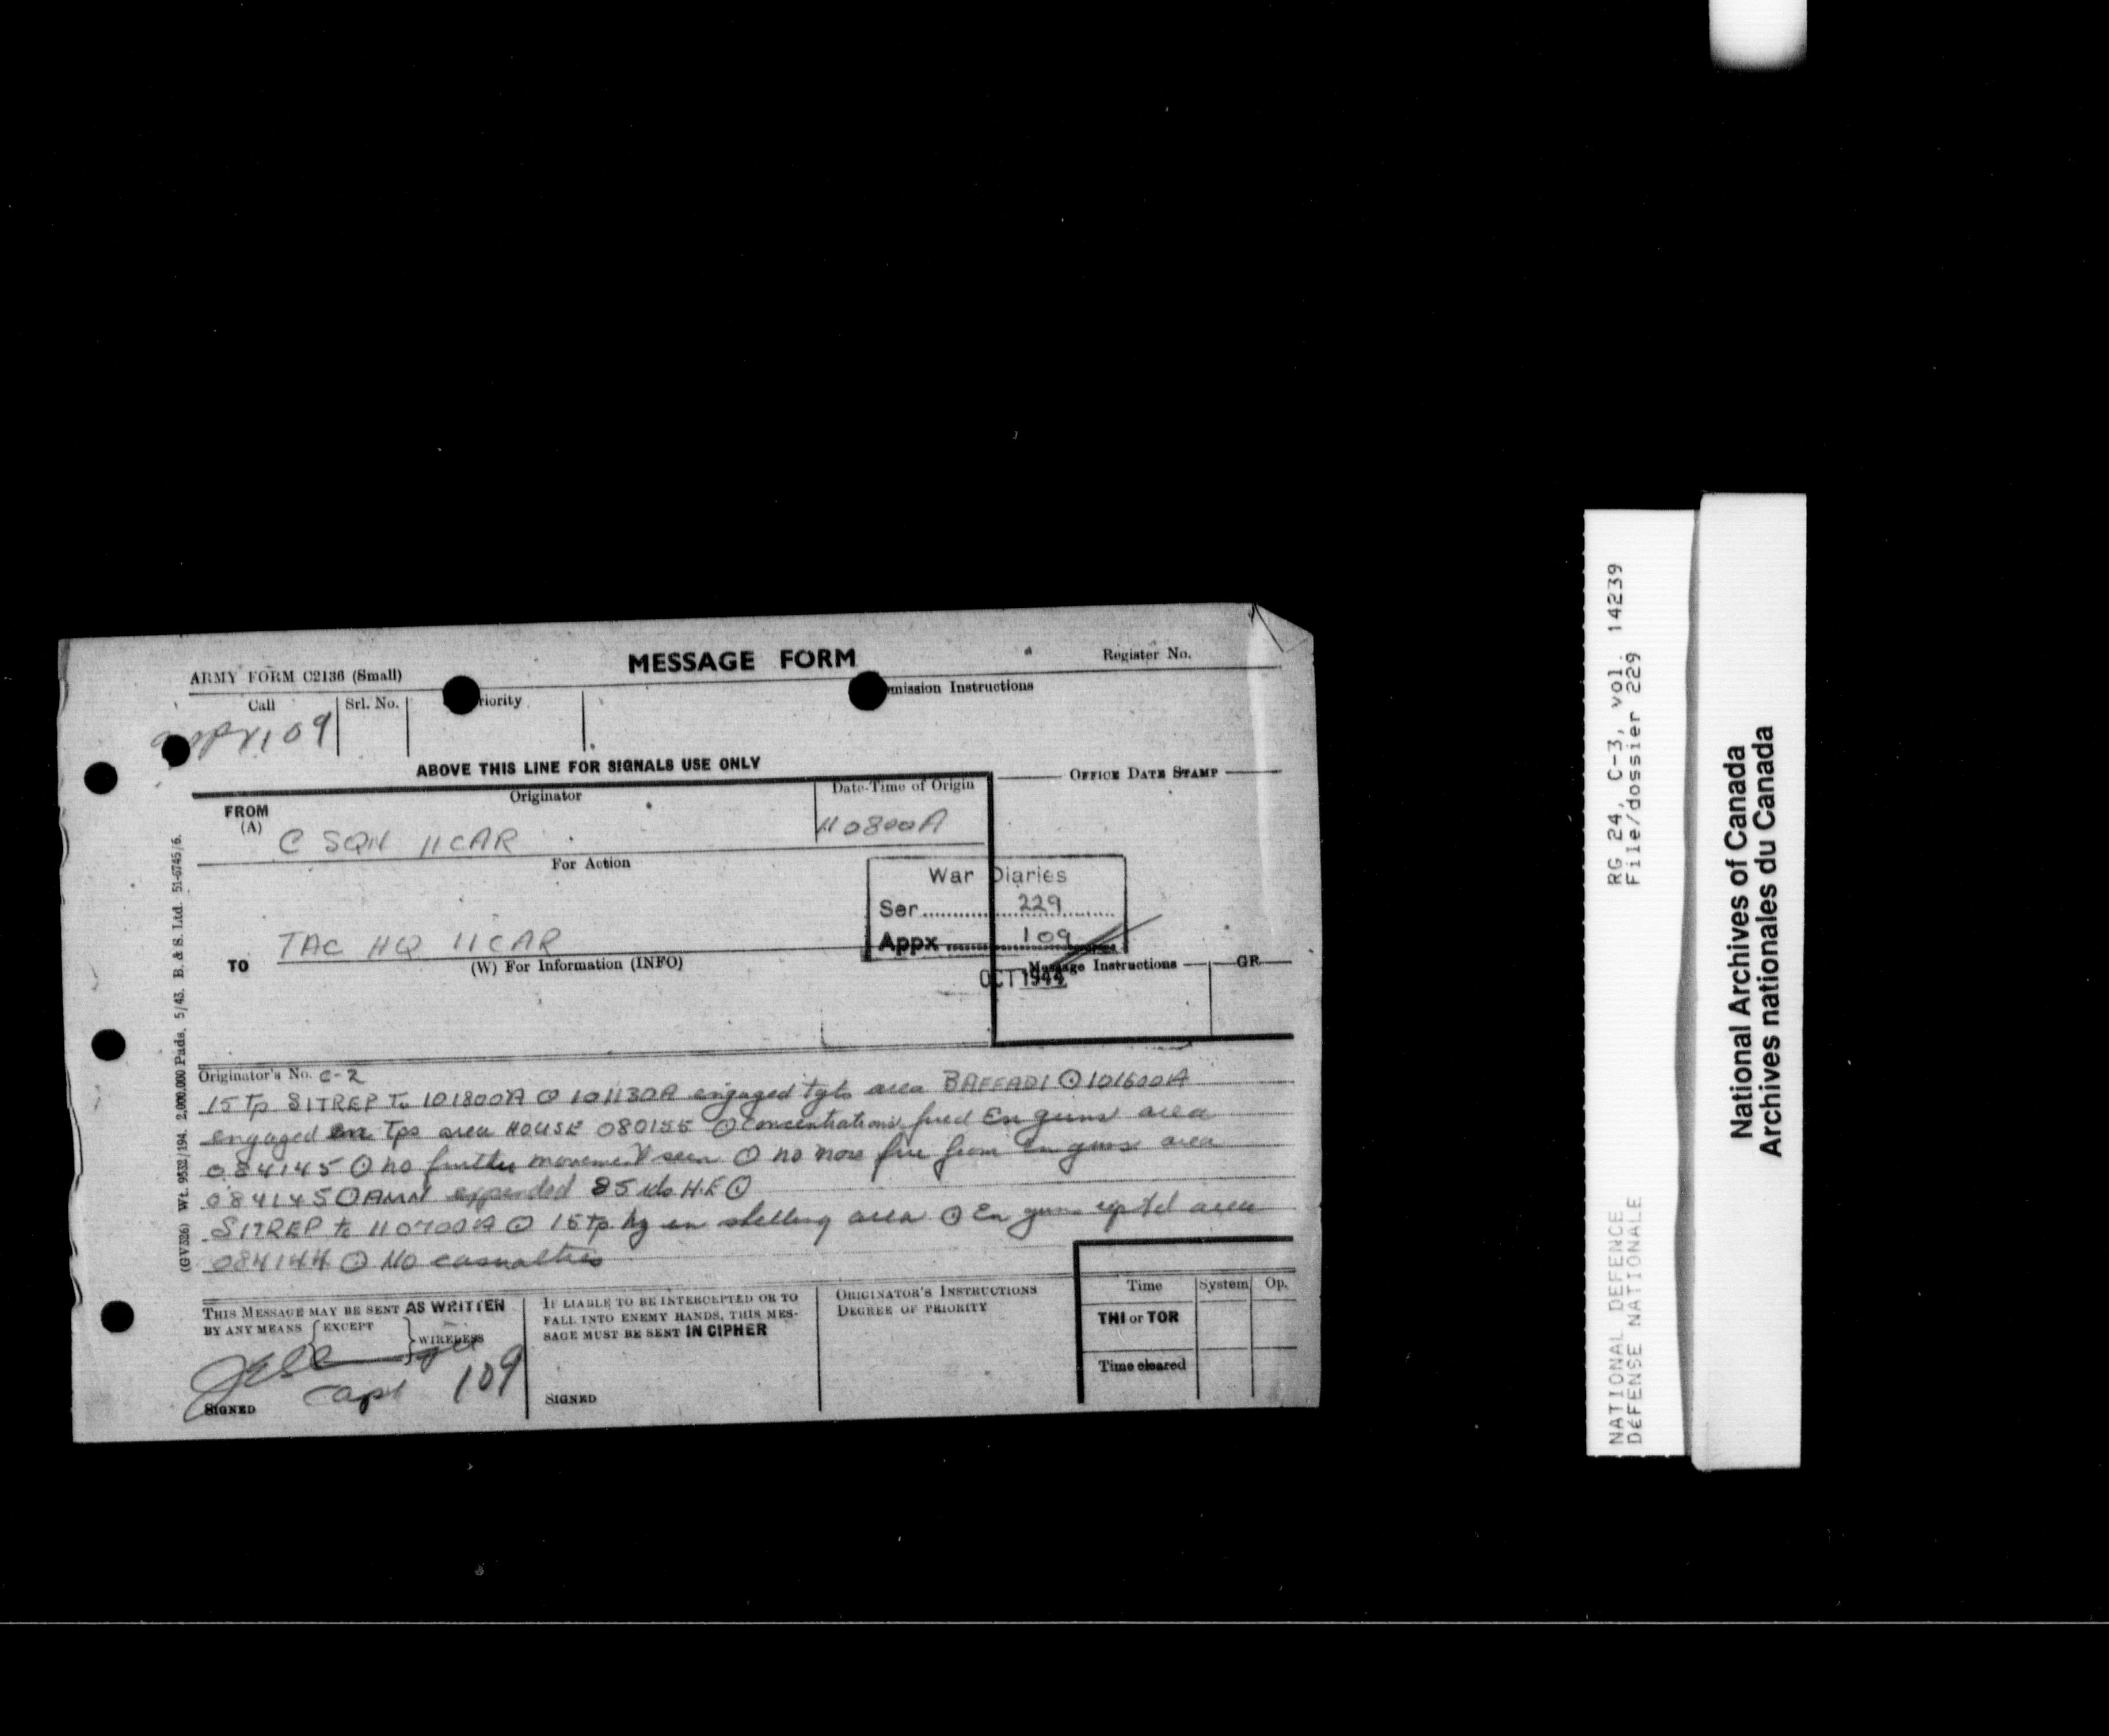 MESSAGE FORM
Register No.
ARMY FORM C2136 (Small)
Call
Srl. No.
riority
mission Instructions
109
ABOVE THIS LINE FOR SIGNALS USE ONLY
OFFICE DATE STAMP
FROM
(A)
Originator
Date-Time of Origin
C SQN 11 CAR
110800A
For Action
War Diaries
Ser. 229
Appx 109
OCT 1944
TO
TAC HQ 11 CAR
(W) For Information (INFO)
Message Instructions
GR
Originator's No. C-2
15 Tp SITREP To 101800A ⊙ 101130A engaged tgts area ⊙ 101600A
engaged en Tps area HOUSE 080155 ⊙ Concentrations fired En guns area
084145 ⊙ no further movement seen ⊙ no more fire from En guns area
084145 ⊙ Amn expended 85 rds H.E ⊙
SITREP to 110700A ⊙ 15 Tp en shelling area ⊙ En guns area
084144 ⊙ No casualties
THIS MESSAGE MAY BE SENT AS WRITTEN
BY ANY MEANS { EXCEPT } WIRELESS
Capt 109
SIGNED
IF LIABLE TO BE INTERCEPTED OR TO
FALL INTO ENEMY HANDS, THIS MES-
SAGE MUST BE SENT IN CIPHER
SIGNED
ORIGINATOR'S INSTRUCTIONS
DEGREE OF PRIORITY
Time
System
Op.
THI or TOR
Time cleared
(GV326) Wt. 9532/194. 2,000,000 Pads. 5/43. B. & S. Ltd. 51-6745/6.
NATIONAL DEFENCE RG 24, C-3, vol. 14239
DéFENSE NATIONALE File/dossier 229
National Archives of Canada
Archives nationales du Canada